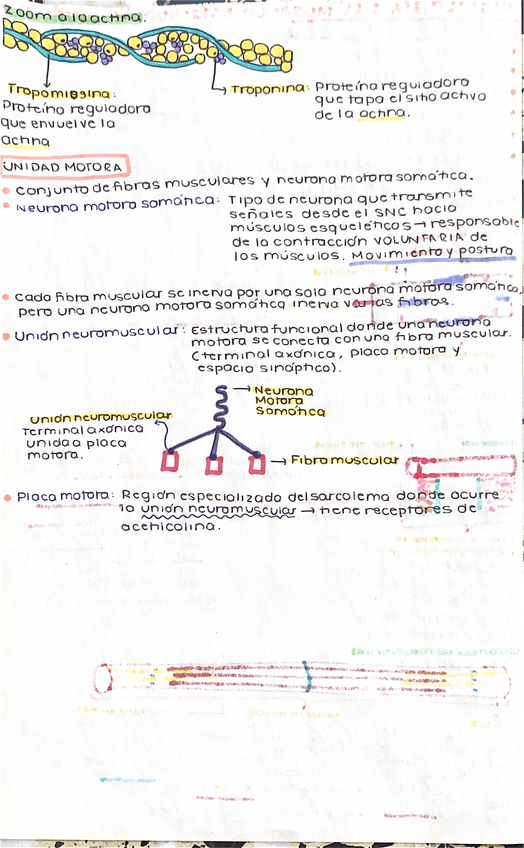 Zoom a la actina.
Tropomiosina:
Proteína reguladora
que envuelve la
actina
Troponina: Proteína reguladora
que tapa el sitio activo
de la actina.
UNIDAD MOTORA
Conjunto de fibras musculares y neurona motora somática.
Neurona motora somática: Tipo de neurona que transmite
señales desde el SNC hacia
músculos esqueléticos → responsable
de la contracción VOLUNTARIA de
los músculos. Movimiento y postura
Cada fibra muscular se inerva por una sola neurona motora somática,
pero una neurona motora somática inerva varias fibras.
Unión neuromuscular: Estructura funcional donde una neurona
motora se conecta con una fibra muscular.
(terminal axónica, placa motora y
espacio sináptico).
→ Neurona
Motora
Somática
Unión neuromuscular
Terminal axónica
unida a placa
motora.
→ Fibra muscular
Placa motora: Región especializado del sarcolema donde ocurre
la unión neuromuscular → tiene receptores de
acetilcolina.